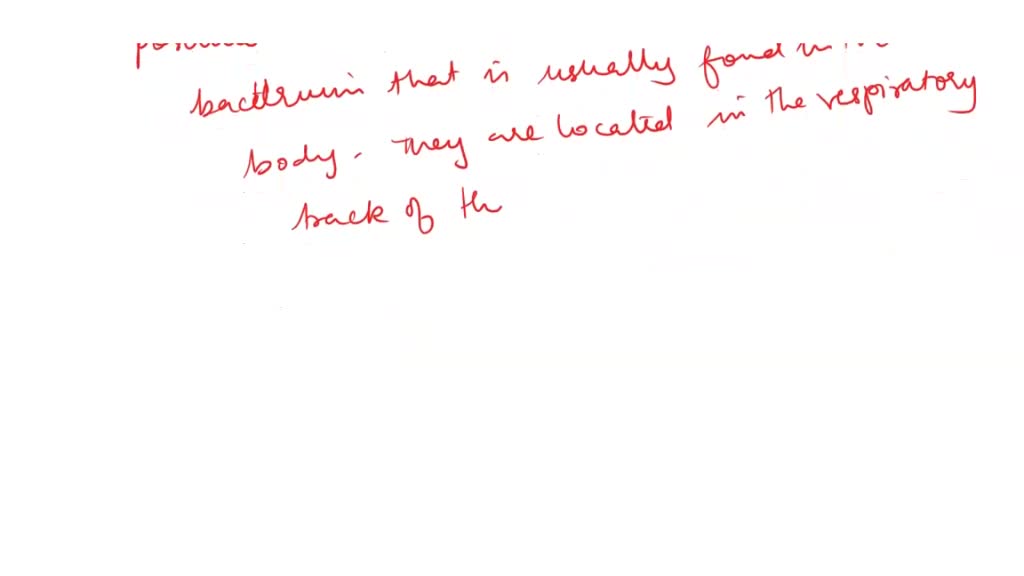 bacterium that is usually fond in
body. They are located in the respiratory
track of th